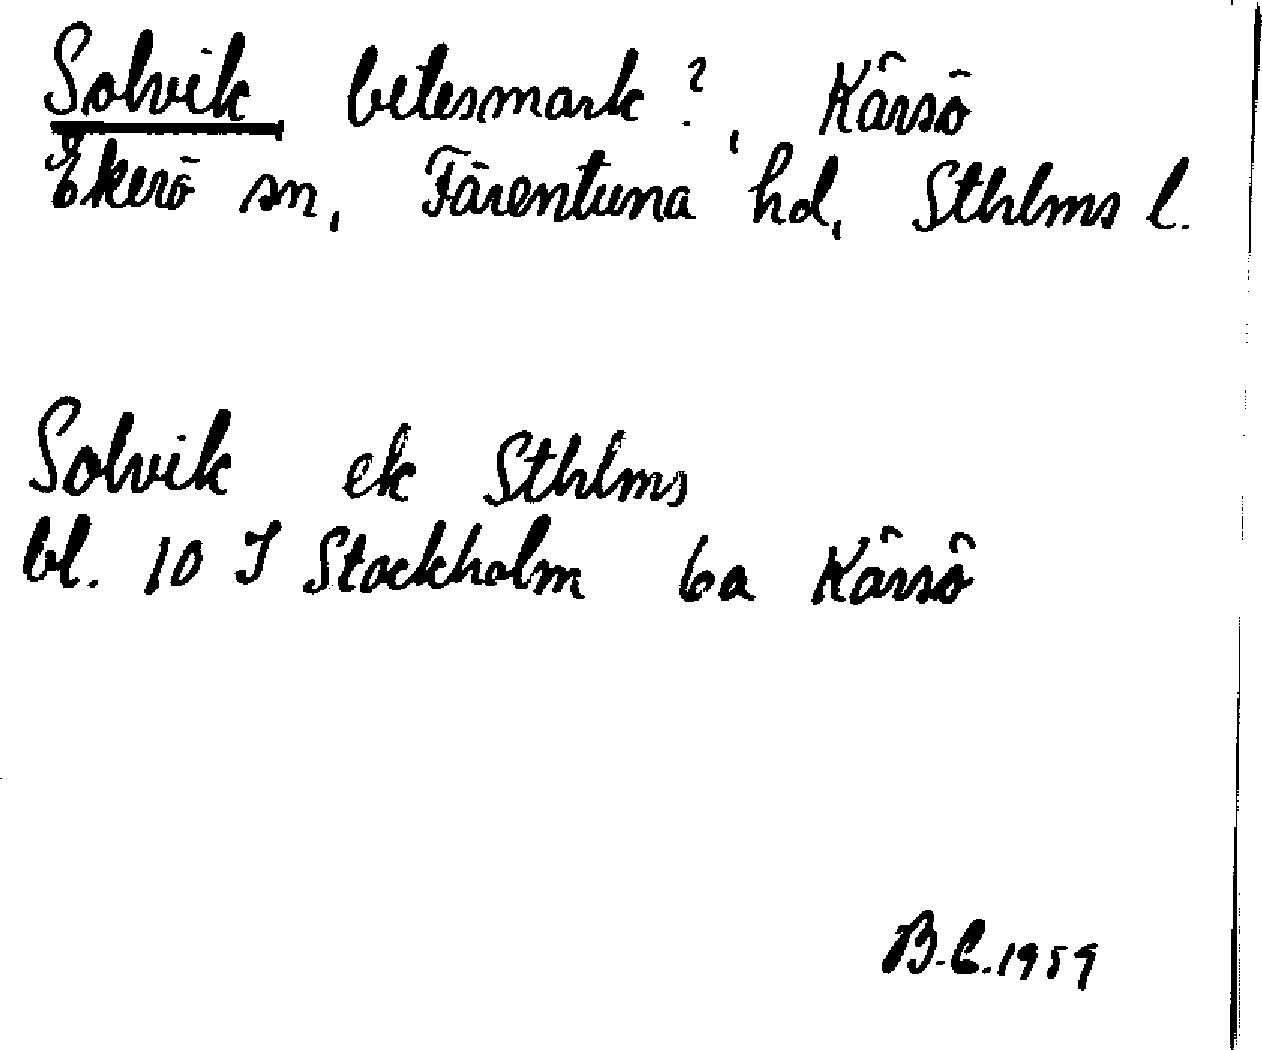 Solvik betesmark?, Kärsö
Ekerö sn, Färentuna hd, Sthlms l.
Solvik ek Sthlms
bl. 10 I Stockholm 6a Kärsö
B.C. 1959